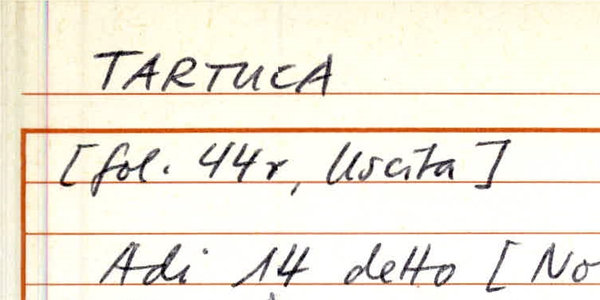 TARTUCA
[fol. 44r, Uscita]
Adi 14 detto [No